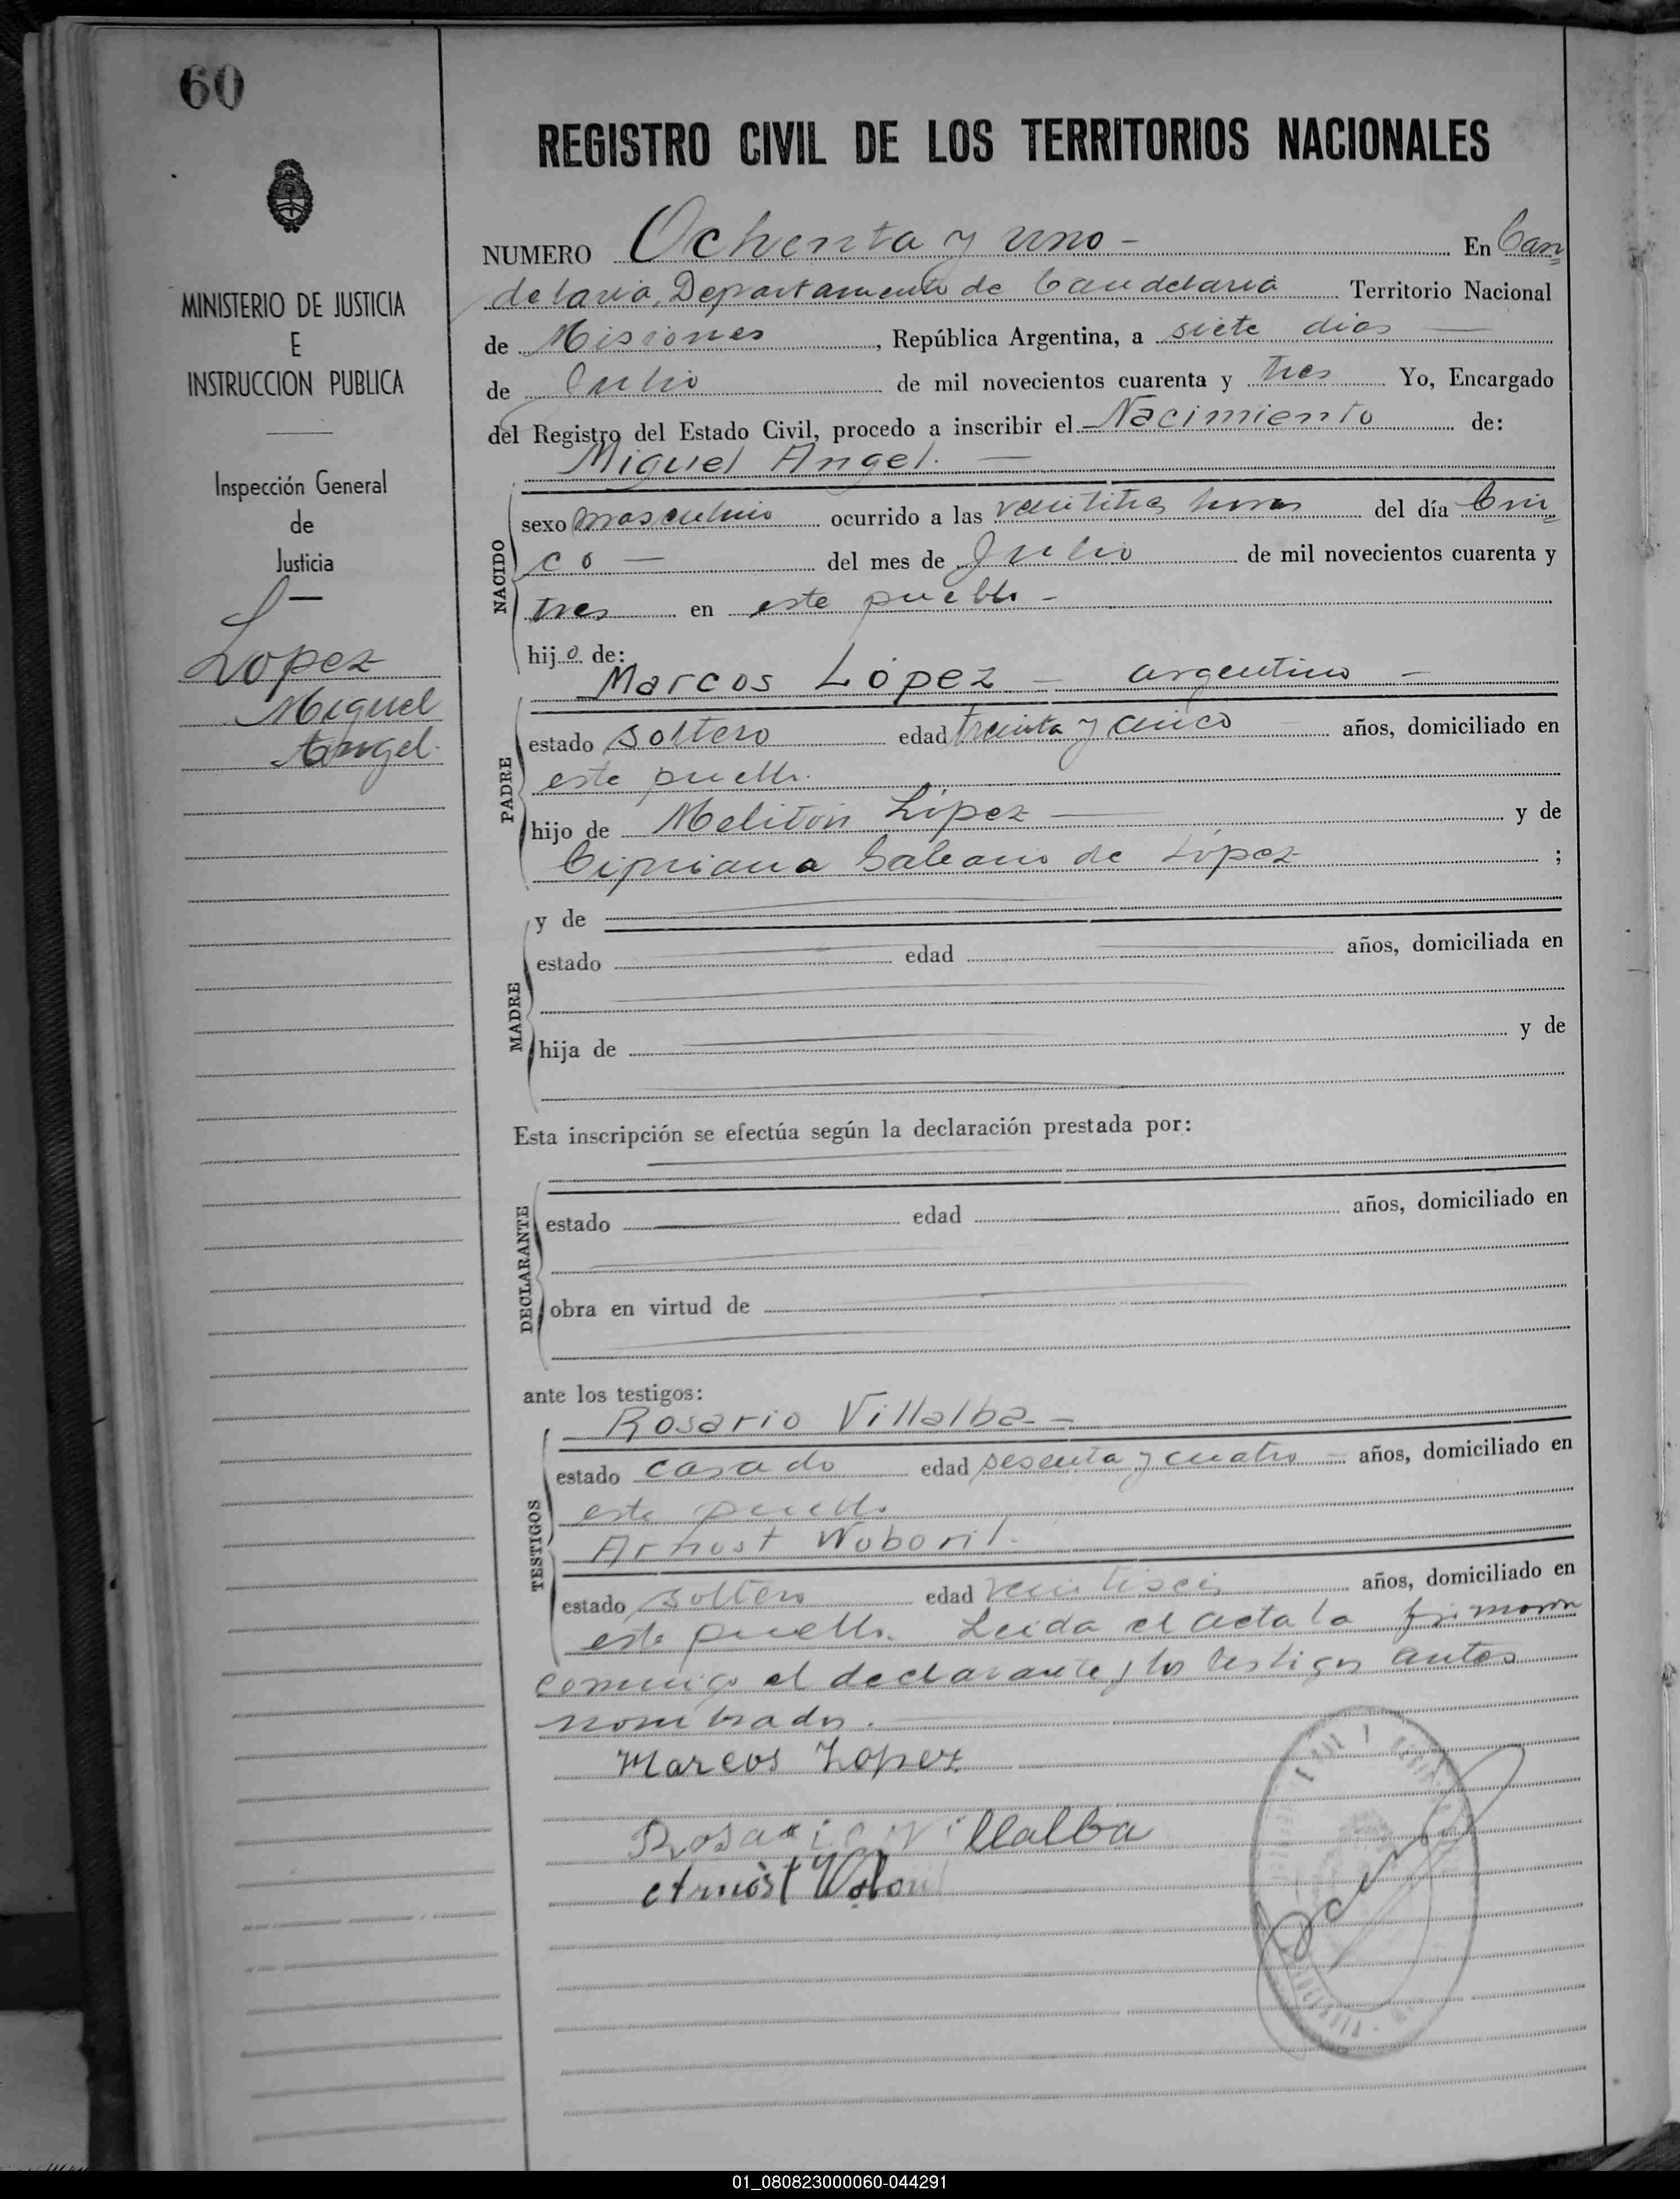 60
REGISTRO CIVIL DE LOS TERRITORIOS NACIONALES
MINISTERIO DE JUSTICIA
E
INSTRUCCION PUBLICA
Inspección General
de
Justicia
Lopez
Miguel
Angel.
NUMERO Ochenta y uno - En Can=
delaria, Departamento de Candelaria Territorio Nacional
de Misiones, República Argentina, a siete dias
de Julio de mil novecientos cuarenta y tres Yo, Encargado
del Registro del Estado Civil, procedo a inscribir el Nacimiento de:
Miguel Angel. -
NACIDO
sexo masculino ocurrido a las veintitres horas del día Cin=
co - del mes de Julio de mil novecientos cuarenta y
tres en este pueblo -
hijo de:
Marcos López - argentino -
PADRE
estado soltero edad treinta y cinco años, domiciliado en
este pueblo.
hijo de Melitón López y de
Cipriana Galeano de López ;
MADRE
y de
estado edad años, domiciliada en
hija de y de
Esta inscripción se efectúa según la declaración prestada por:
DECLARANTE
estado edad años, domiciliado en
obra en virtud de
ante los testigos:
Rosario Villalba -
TESTIGOS
estado casado edad sesenta y cuatro años, domiciliado en
este pueblo
Arnost Woboril.
estado soltero edad veintiseis años, domiciliado en
este pueblo. Leida el acta la firmaron
conmigo el declarante y los testigos antes
nombrados.
Marcos Lopez
Rosario Villalba
Arnošt
01_080823000060-044291